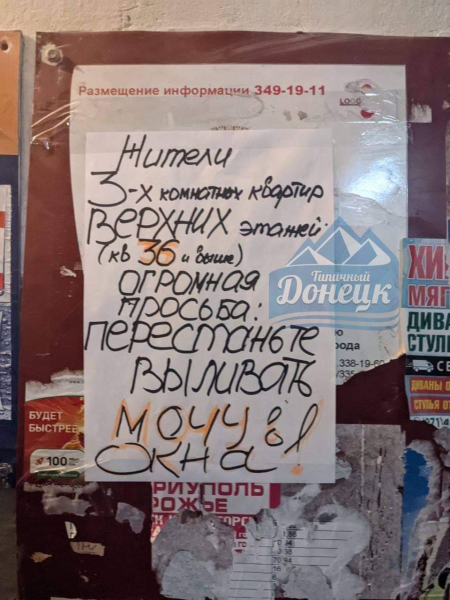 Размещение информации 349-19-11
LOGO
Жители
3-х комнатных квартир
ВЕРХНИХ этажей
(кв 36 и выше)
ОГРОМНАЯ
ПРОСЬБА:
ПЕРЕСТАНЬТЕ
ВЫЛИВАТЬ
МОЧУ в
ОКНА!
Типичный
Донецк
ХИ
МЯГ
ДИВА
СТУЛЬ
ДИВАНЫ О
СТУЛЬЯ ОТ
338-19-60
/335
БУДЕТ
БЫСТРЕЕ
100
РИУПОЛЬ
РОЖЬЕ